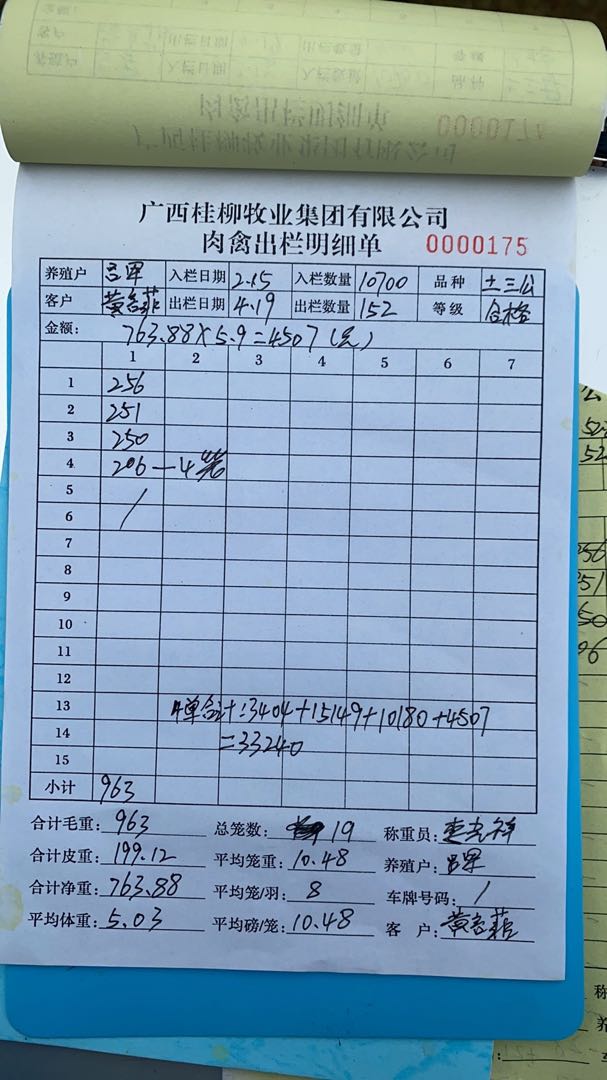 广西桂柳牧业集团有限公司
肉禽出栏明细单 0000175
养殖户 吕军 入栏日期 2.15 入栏数量 10700 品种 土三公
客户 出栏日期 4.19 出栏数量 152 等级 合格
金额: 763.88×5.9=4507(元)
1 2 3 4 5 6 7
1 256
2 251
3 250
4 206—4笼
5 /
6
7
8
9
10
11
12
13 4单合计:3404+15149+10180+4507
14 =33240
15
小计 963
合计毛重: 963 总笼数: 19 称重员:
合计皮重: 199.12 平均笼重: 10.48 养殖户: 吕军
合计净重: 763.88 平均笼/羽: 8 车牌号码: /
平均体重: 5.03 平均磅/笼: 10.48 客户:
0000174
256
251
250
206